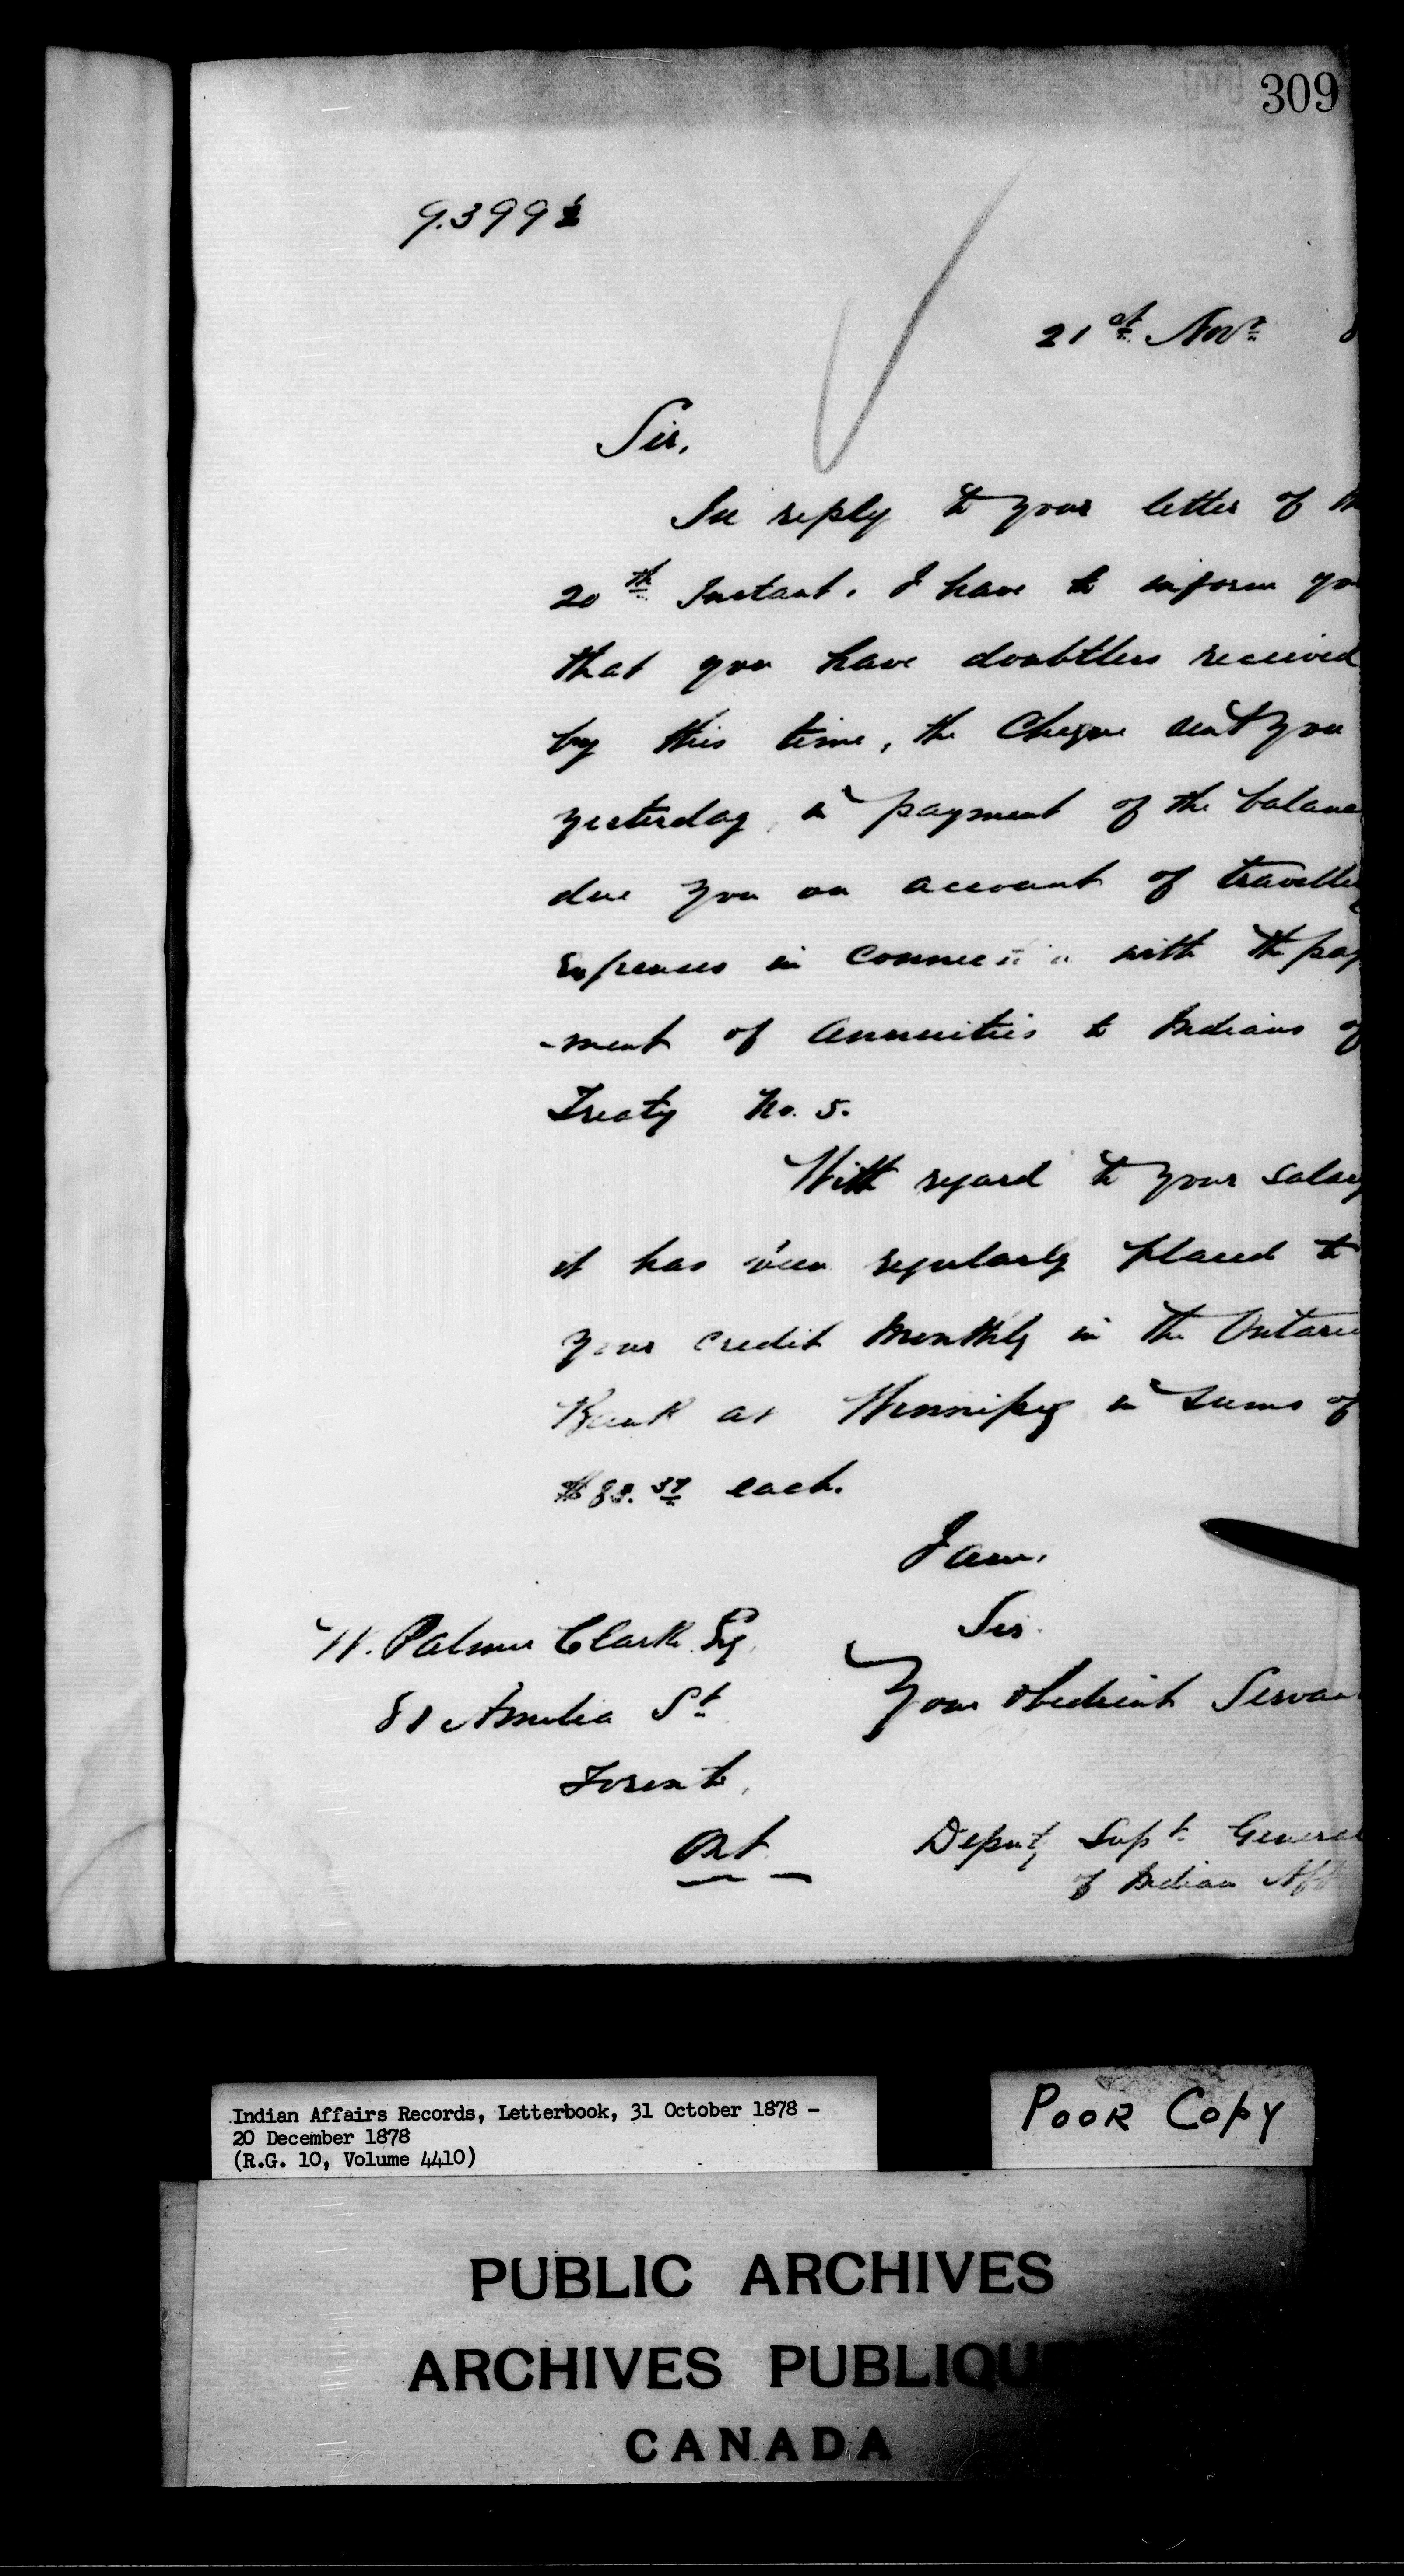 309
9.399½
21st Nov. 8
Sir,
In reply to your letter of th
20th Instant. I have to inform yo
that you have doubtless received
by this time, the Cheque sent you
yesterday, in payment of the balance
due you on account of travelling
Expenses in connection with the pay
-ment of Annuities to Indians of
Treaty No. 5.
With regard to your salary
it has been regularly placed to
your credit monthly in the Ontario
Bank at Winnipeg in sums of
each.
I am,
Sir.
W. Palmer Clarke Esq
Your obedient Servan
81 Amelia St
Toronto,
Ont
Deputy Supt. General
of Indian Aff
Indian Affairs Records, Letterbook, 31 October 1878 -
20 December 1878
(R.G. 10, Volume 4410)
POOR COPY
PUBLIC ARCHIVES
ARCHIVES PUBLIQU
CANADA